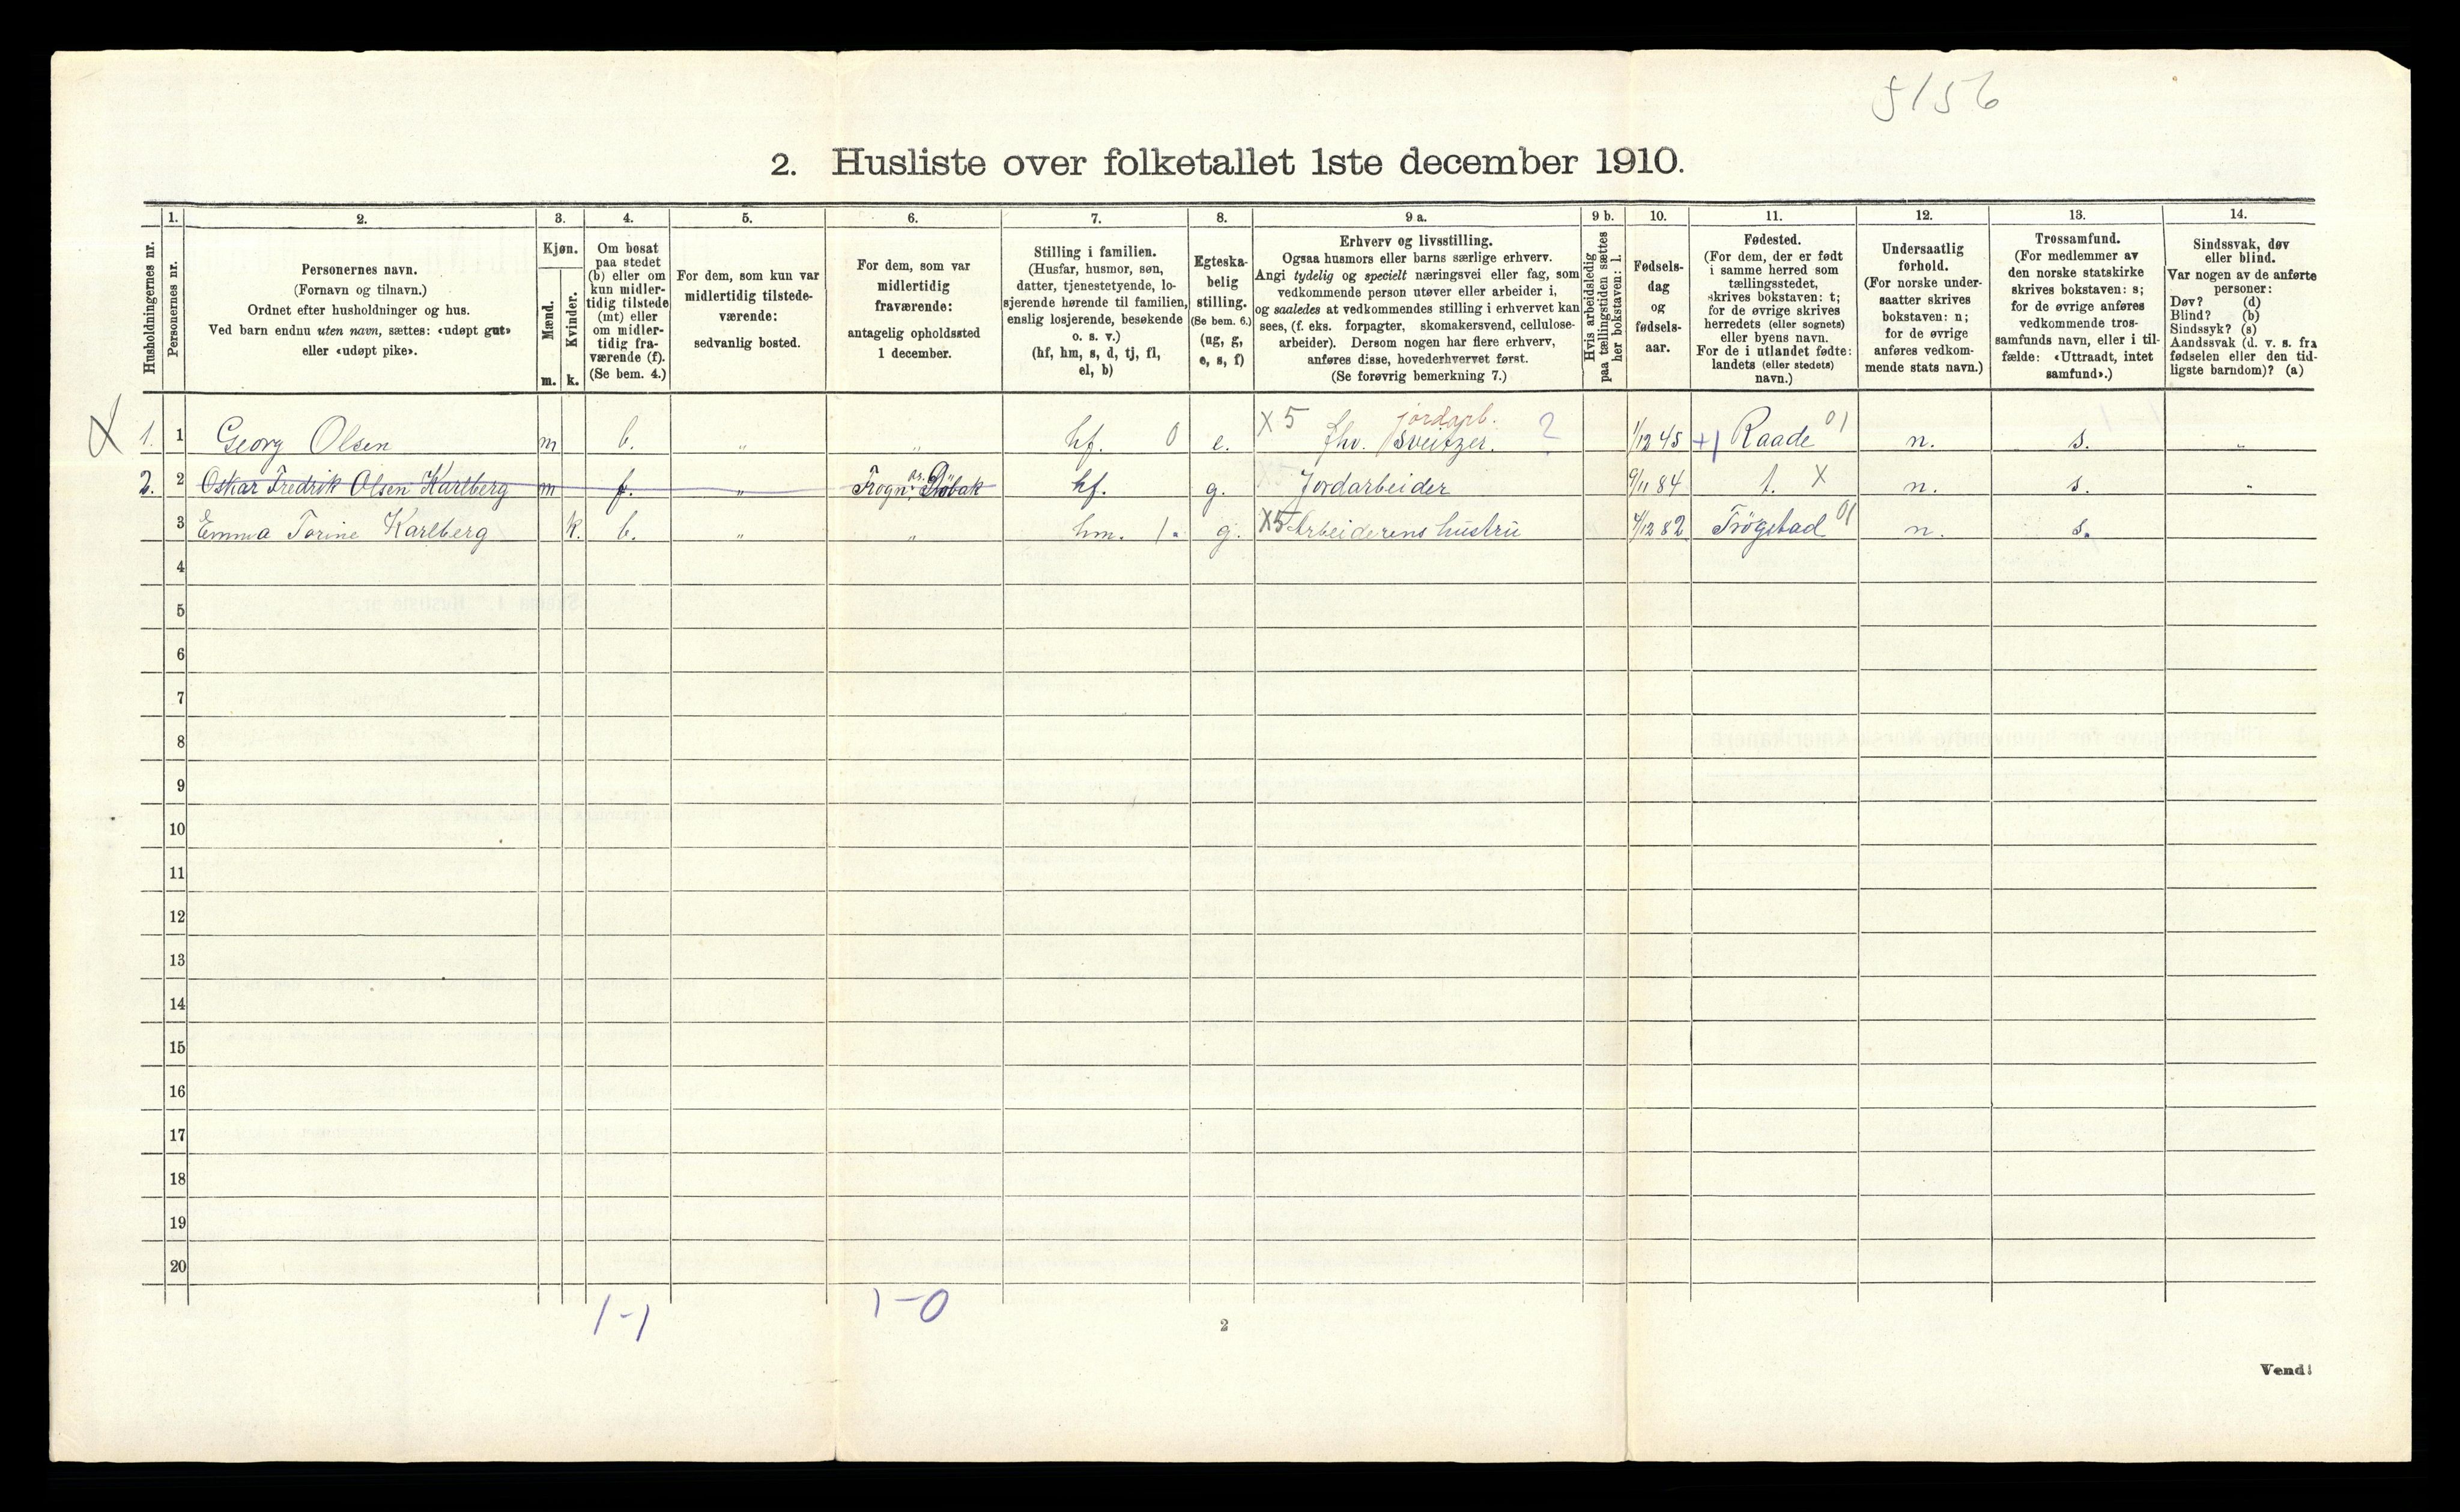 5156
2. Husliste over folketallet 1ste december 1910.
1. 2. 3. 4. 5. 6. 7. 8. 9 a. 9 b. 10. 11. 12. 13. 14.
Husholdningernes nr.
Personernes nr.
Personernes navn.
(Fornavn og tilnavn.)
Ordnet efter husholdninger og hus.
Ved barn endnu uten navn, sættes: «udøpt gut»
eller «udøpt pike».
Kjøn.
Mænd.
Kvinder.
m. k.
Om bosat
paa stedet
(b) eller om
kun midler-
tidig tilstede
(mt) eller
om midler-
tidig fra-
værende (f).
(Se bem. 4.)
For dem, som kun var
midlertidig tilstede-
værende:
sedvanlig bosted.
For dem, som var
midlertidig
fraværende:
antagelig opholdssted
1 december.
Stilling i familien.
(Husfar, husmor, søn,
datter, tjenestetyende, lo-
sjerende hørende til familien,
enslig losjerende, besøkende
o. s. v.)
(hf, hm, s, d, tj, fl,
el, b)
Egteska-
belig
stilling.
(Se bem. 6.)
(ug, g,
e, s, f)
Erhverv og livsstilling.
Ogsaa husmors eller barns særlige erhverv.
Angi tydelig og specielt næringsvei eller fag, som
vedkommende person utøver eller arbeider i,
og saaledes at vedkommendes stilling i erhvervet kan
sees, (f. eks. forpagter, skomakersvend, cellulose-
arbeider). Dersom nogen har flere erhverv,
anføres disse, hovederhvervet først.
(Se forøvrig bemerkning 7.)
Hvis arbeidsledig
paa tællingstiden sættes
her bokstaven: l.
Fødsels-
dag
og
fødsels-
aar.
Fødested.
(For dem, der er født
i samme herred som
tællingsstedet,
skrives bokstaven: t;
for de øvrige skrives
herredets (eller sognets)
eller byens navn.
For de i utlandet fødte:
landets (eller stedets)
navn.)
Undersaatlig
forhold.
(For norske under-
saatter skrives
bokstaven: n;
for de øvrige
anføres vedkom-
mende stats navn.)
Trossamfund.
(For medlemmer av
den norske statskirke
skrives bokstaven: s;
for de øvrige anføres
vedkommende tros-
samfunds navn, eller i til-
fælde: «Uttraadt, intet
samfund».)
Sindssvak, døv
eller blind.
Var nogen av de anførte
personer:
Døv? (d)
Blind? (b)
Sindssyk? (s)
Aandssvak (d. v. s. fra
fødselen eller den tid-
ligste barndom)? (a)
X 1. 1 Georg Olsen m b. " " hf. 0 e. X5 fhv. Sveitzer. jordarb. ? 1/12 45 +1 Raade 01 n. s. "
2. 2 Oskar Fredrik Olsen Karlberg m f. " Frogn pr. Drøbak hf. g. X5 Jordarbeider 9/11 84 t. X n. s. "
3 Emma Torine Karlberg k. b. " " hm. 1. g. X5 Arbeiderens hustru 4/12 82 Trøgstad 01 n. s.
4
5
6
7
8
9
10
11
12
13
14
15
16
17
18
19
20
1-1 1-0
2
Vend!